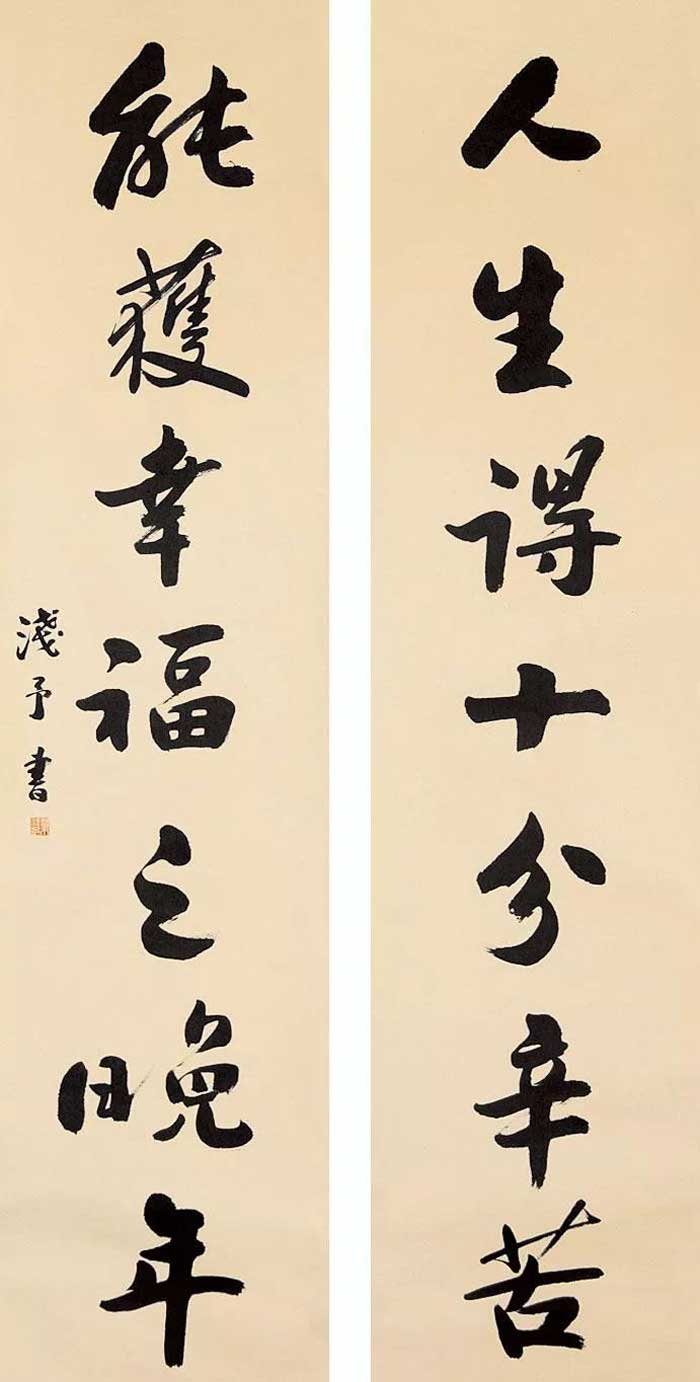 人生得十分辛苦
能獲幸福之晚年
淺予書